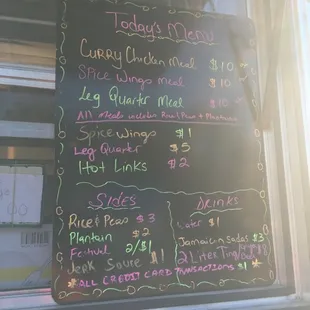 Today's Menu
Curry Chicken Meal $10
Spice Wings meal $10
Leg Quarter Meal $10
All meals includes Rice & Peas + Plantains
Spice Wings $1
Leg Quarter $5
Hot Links $2
Sides
Rice & Peas $3
Plantain $2
Festival 2/$1
Jerk Sauce $1
Drinks
Water $1
Jamaican Sodas $3
2 Liter Ting
*ALL CREDIT CARD TRANSACTIONS $1*